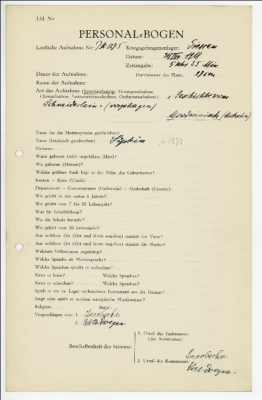 Lfd. Nr
PERSONAL-BOGEN
Lautliche Aufnahme Nr.: PK 875
Kriegsgefangenenlager:
Datum:
Zeitangabe: 5 Uhr 25 Min
Dauer der Aufnahme:
Durchmesser der Platte: 27 cm
Raum der Aufnahme:
Art der Aufnahme (Sprechaufnahme, Gesangsaufnahme,
Choraufnahme, Instrumentenaufnahme, Orchesteraufnahme):
Schneiderlein (vorgetragen)
Name (in der Muttersprache geschrieben):
Name (lateinisch geschrieben):
Vorname:
Wann geboren (oder ungefähres Alter)?
Wo geboren (Heimat)?
Welche größere Stadt liegt in der Nähe des Geburtsortes?
Kanton — Kreis (Ujedz):
Departement — Gouvernement (Gubernija) — Grafschaft (County):
Wo gelebt in den ersten 6 Jahren?
Wo gelebt vom 7. bis 20. Lebensjahr?
Was für Schulbildung?
Wo die Schule besucht?
Wo gelebt vom 20. Lebensjahr?
Aus welchem Ort (Ort und Kreis angeben) stammt der Vater?
Aus welchem Ort (Ort und Kreis angeben) stammt die Mutter?
Welchem Volksstamm angehörig?
Welche Sprache als Muttersprache?
Welche Sprachen spricht er außerdem?
Kann er lesen? Welche Sprachen?
Kann er schreiben? Welche Sprachen?
Spielt er ein im Lager vorhandenes Instrument aus der Heimat?
Singt oder spielt er modern europäische Musikweisen?
Religion: Beruf:
Vorgeschlagen von: 1. Jacobsohn
2.
Beschaffenheit der Stimme:
1. Urteil des Fachmannes
(des Assistenten):
2. Urteil des Kommissars:
Jacobsohn